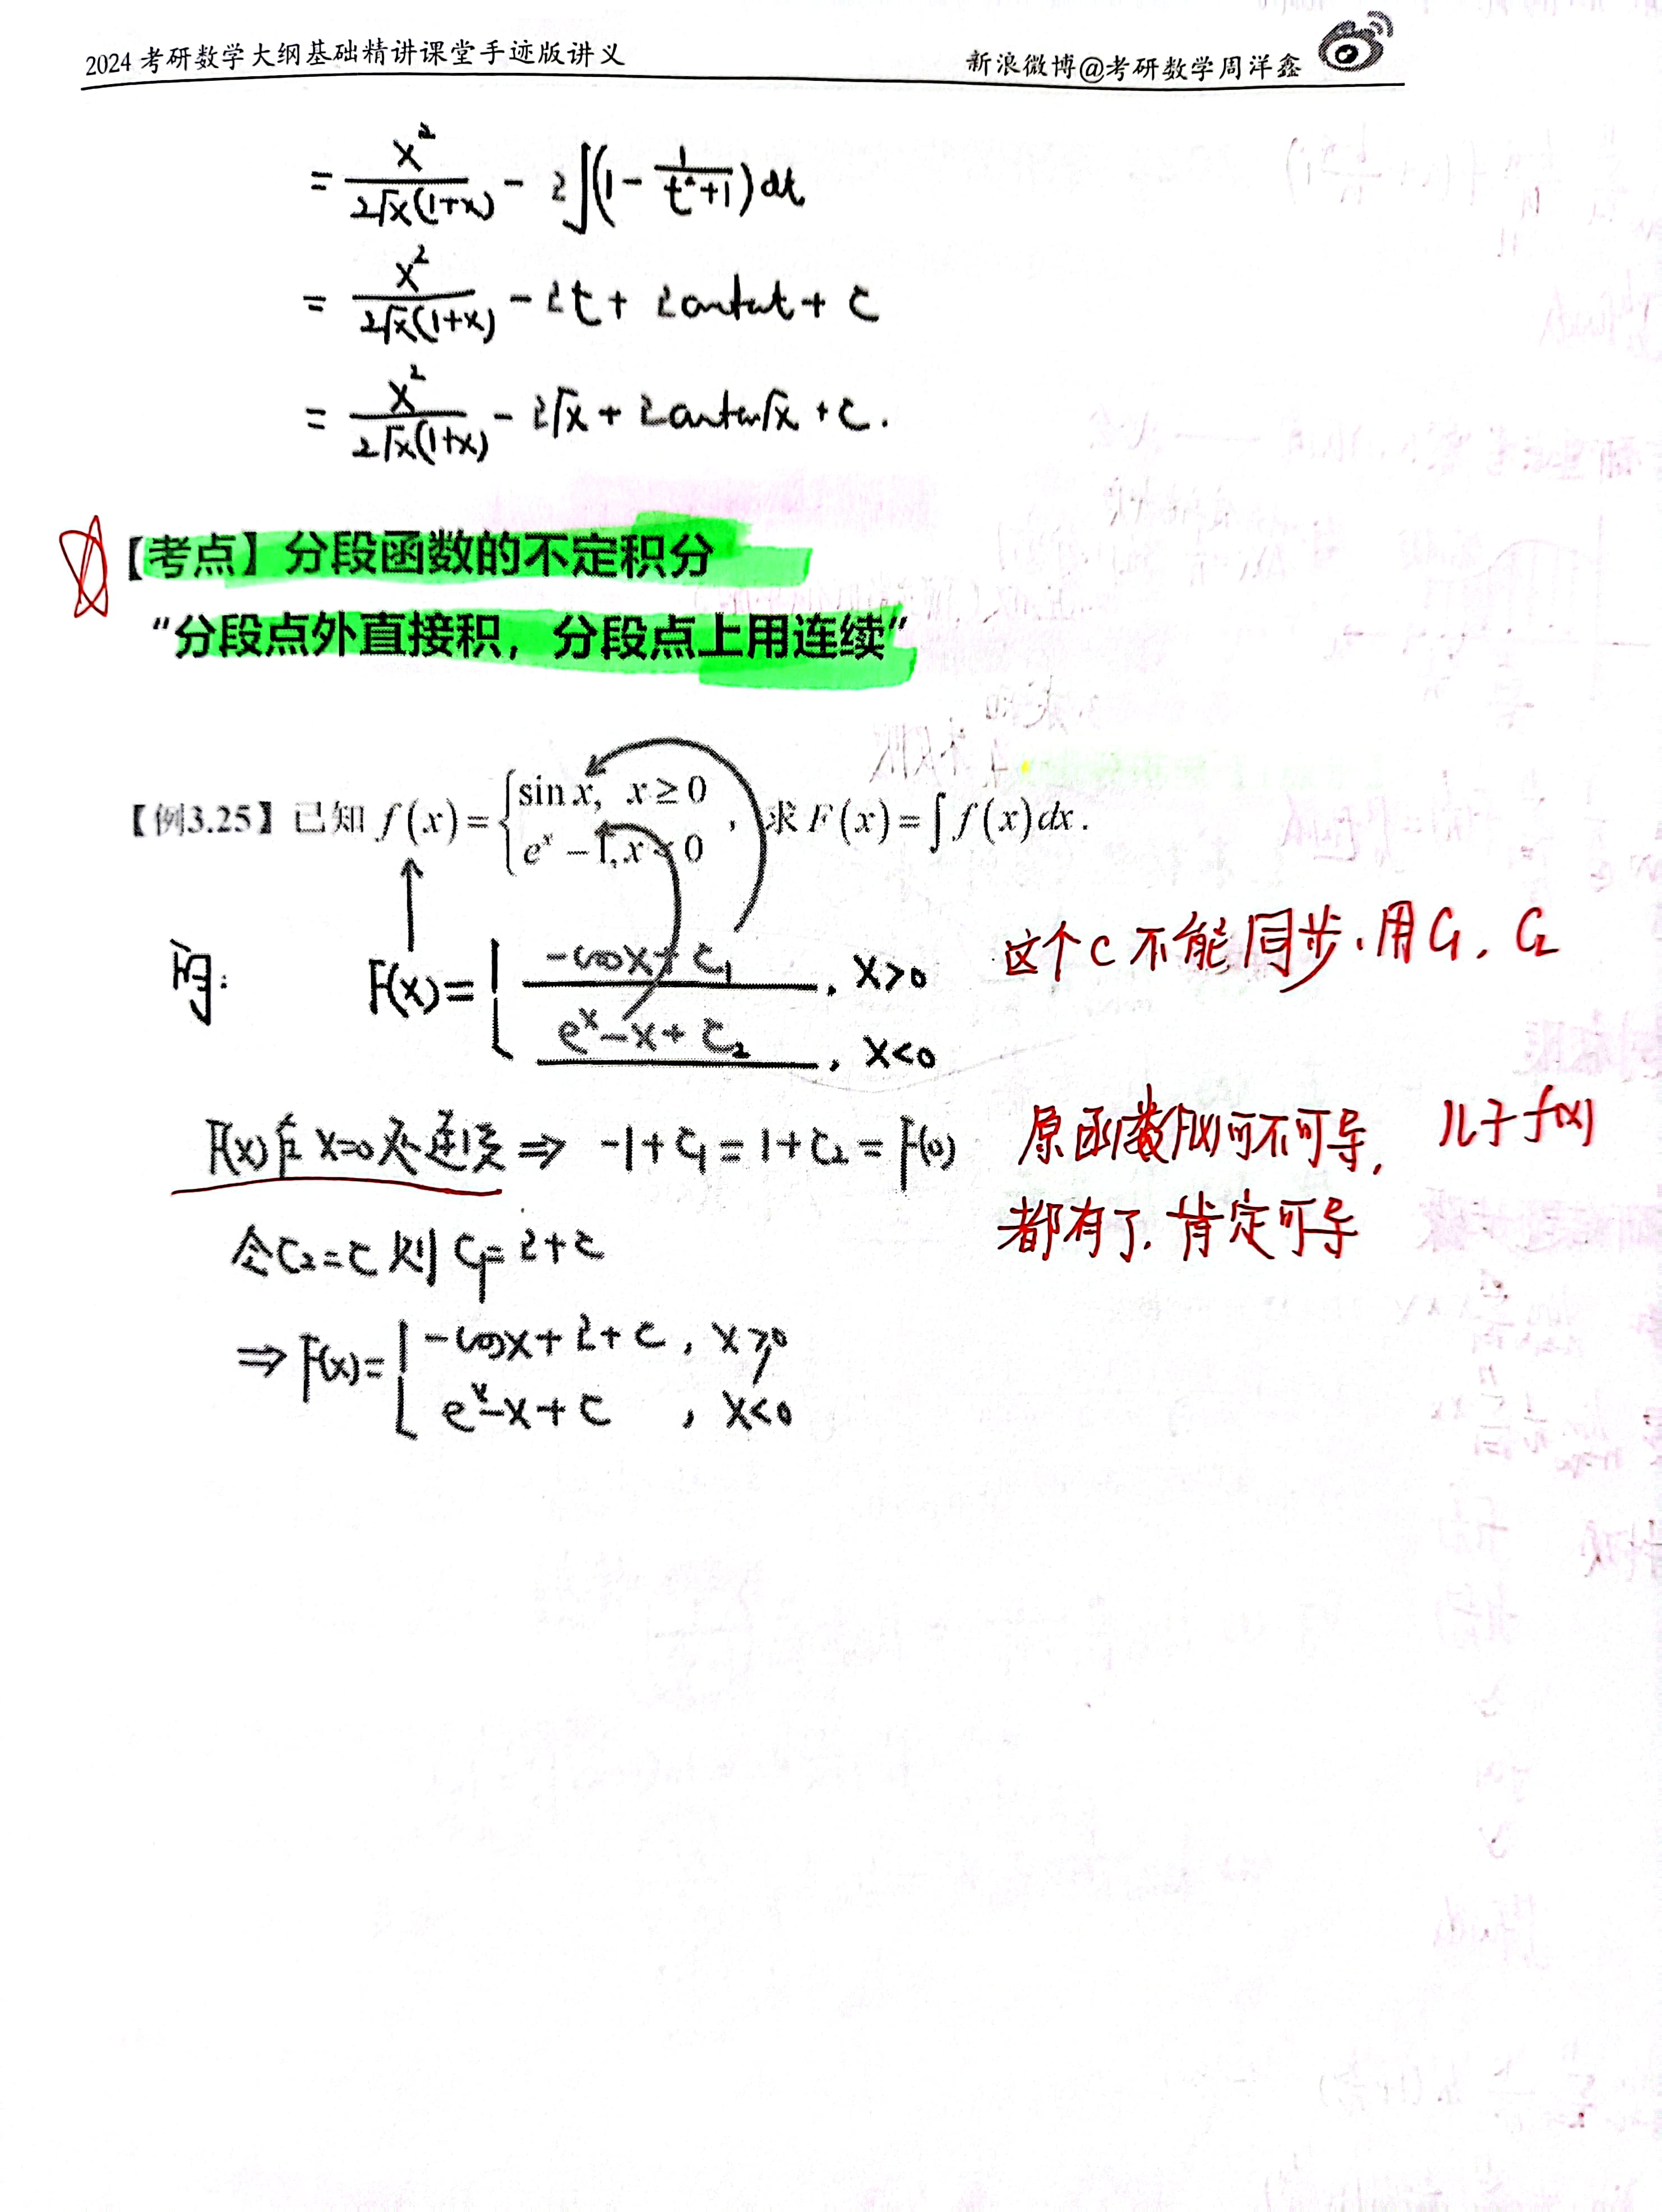 2024 考研数学大纲基础精讲课堂手迹版讲义
新浪微博@考研数学周洋鑫
= x²/(2√x(1+x)) - 2∫(1 - 1/(t²+1))dt
= x²/(2√x(1+x)) - 2t + 2arctant + C
= x²/(2√x(1+x)) - 2√x + 2arctan√x + C.
【考点】分段函数的不定积分
“分段点外直接积，分段点上用连续”
【例3.25】已知 f(x) = { sin x, x ≥ 0 ; e^x - 1, x < 0 , 求 F(x) = ∫ f(x)dx.
解: F(x) = { -cosx + C₁, x>0
e^x - x + C₂, x<0
这个C不能同步.用C₁, C₂
F(x)在x=0处连续 ⇒ -1+C₁ = 1+C₂ = F(0)
原函数F(x)可不可导, 儿子f(x)
都有了.肯定可导
令C₂=C 则 C₁=2+C
⇒ F(x) = { -cosx+2+C, x≥0
e^x-x+C, x<0